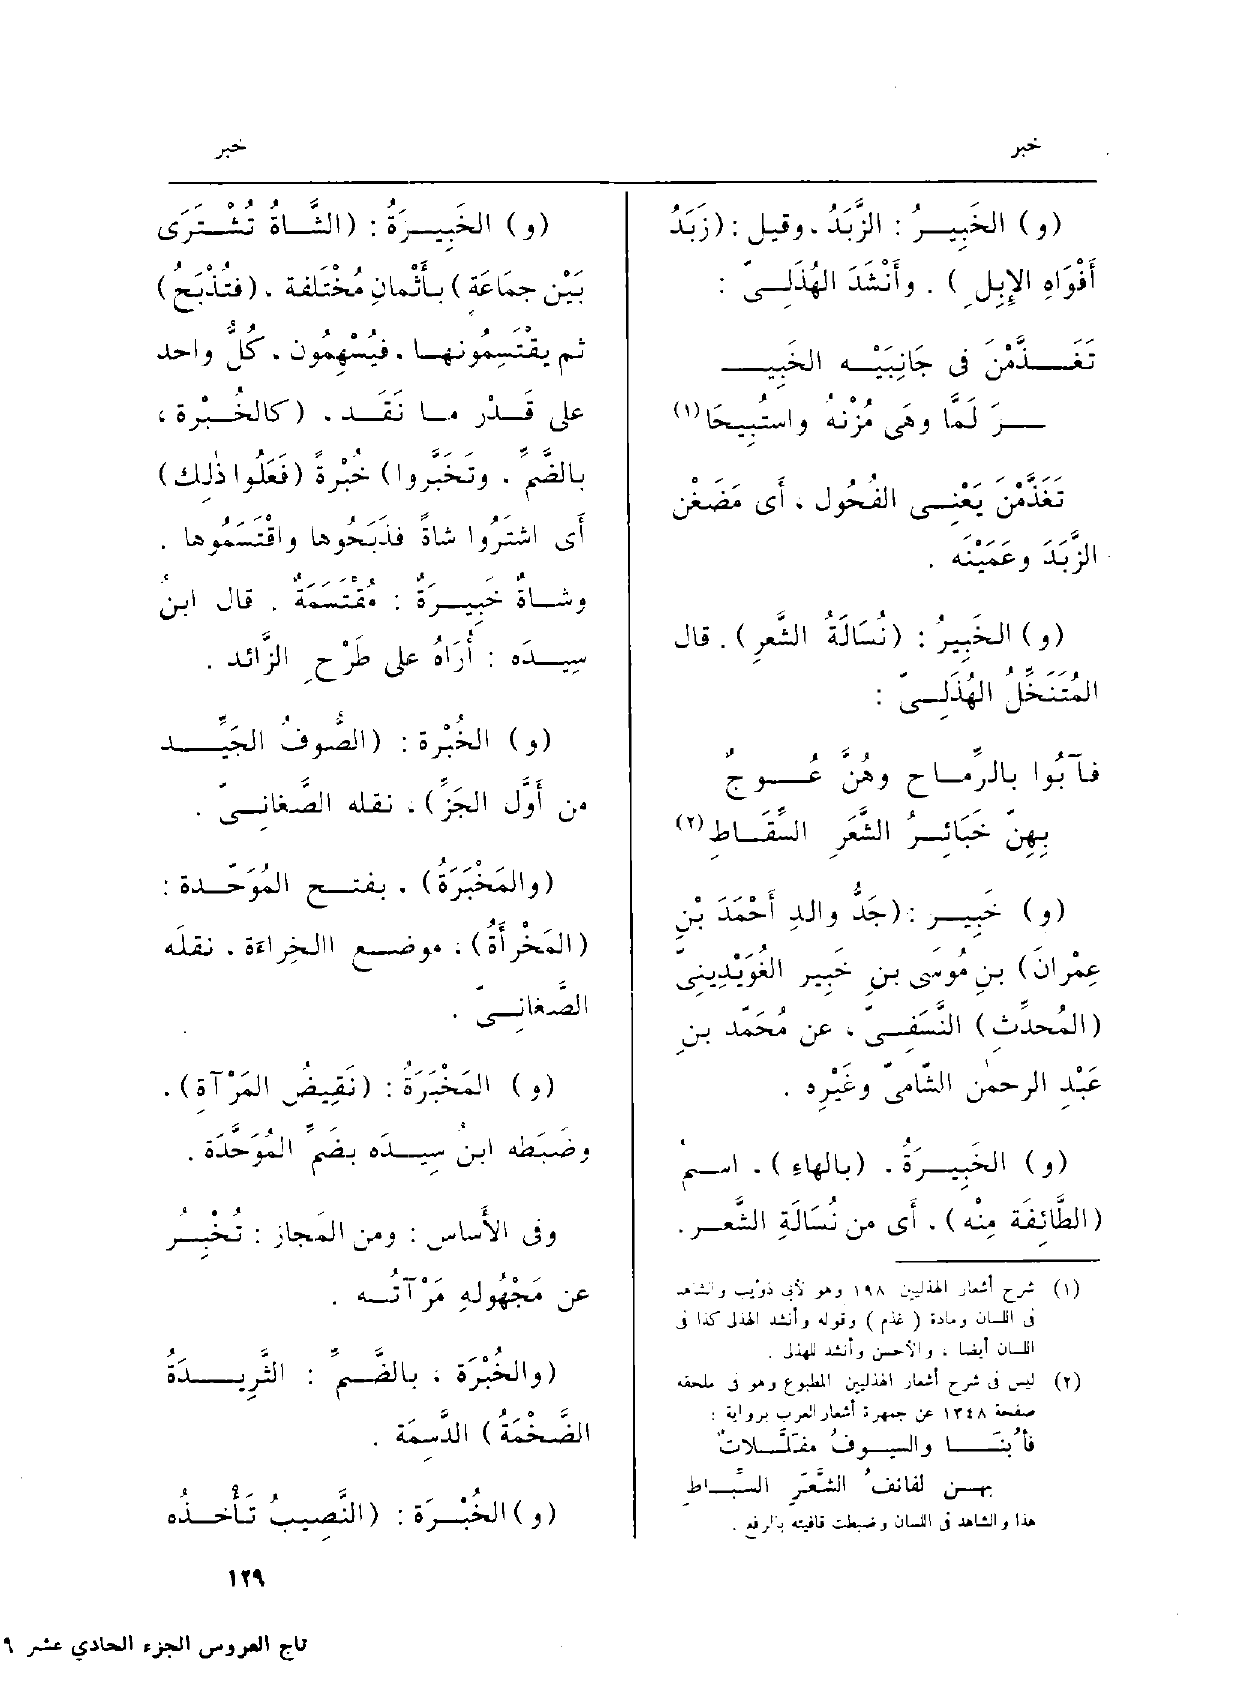 خبر
خبر
(و) الخَبِيــرُ : الزَّبَدُ ، وقيل : (زَبَدُ
أَفْوَاهِ الإِبِلِ ) . وأَنْشَدَ الهُذَلِــىّ :
تَغَــذَّمْنَ فى جَانِبَيْــهِ الخَبِيــ
ــرَ لَمَّا وهَى مُزْنُهُ واسْتُبِيحَا (١)
تَغَذَّمْنَ يَعْنِــى الفُحُول ، أَى مَضَغْن
الزَّبَدَ وعَمَيْنَه .
(و) الخَبِيرُ : (نُسَالَةُ الشَّعرِ) . قال
المُتَنَخِّلُ الهُذَلِــىّ :
فآبُوا بالرِّمــاح وهُنَّ عُــوجٌ
بِهِنّ خَبَائِــرُ الشَّعَرِ السِّقَــاطِ (٢)
(و) خَبِيــر : (جَدُّ والدِ أَحْمَدَ بْنِ
عِمْرانَ) بنِ مُوسَى بنِ خَبِير الغُوَيْدِينِىّ
(المُحدِّثِ) النَّسَفِــىّ ، عن مُحَمّد بنِ
عَبْدِ الرحمٰن الشّامىّ وغَيْرِه .
(و) الخَبِيــرَةُ ، (بالهاءِ ) ، اســمُ
(الطَّائِفَة مِنْه ) ، أَى من نُسَالَةِ الشَّعــر .
(١) شرح أشعار الهذليين ١٩٨ وهو لأبى ذؤيب والشاهد
فى اللسان ومادة ( غذم ) وقوله وأنشد الهذلى كذا فى
اللسان أيضا ، والأحسن وأنشد للهذلى .
(٢) ليس فى شرح أشعار الهذليين المطبوع وهو فى ملحقه
صفحة ١٣٤٨ عن جمهرة أشعار العرب برواية :
فأُبْنَــا والسيــوفُ مفلَّــلاتٌ
بهــن لفائفُ الشَّعَرِ السِّبَــاطِ
هذا والشاهد فى اللسان وضبطت قافيته بالرفع .
(و) الخَبِيــرَةُ : (الشَّــاةُ تُشْــتَرَى
بَيْن جمَاعَةٍ ) بأَثْمانٍ مُخْتَلفة . (فتُذْبَحُ)
ثم يقْتَسِمُونهــا ، فيُسْهِمُون ، كُلُّ واحد
على قَــدْر مــا نَقَــد ، (كالخُــبْرة ،
بالضَّمِّ ، وتَخَبَّروا) خُبْرةً (فَعَلُوا ذٰلِك)
أَى اشتَرُوا شاةً فذَبَحُوها واقْتَسَمُوها .
وشــاةٌ خَبِيــرَةٌ : مُقْتَسَمَةٌ . قال ابنُ
سِيــدَه : أُرَاهُ على طَرْحِ الزَّائد .
(و) الخُبْرة : (الصُّوفُ الجَيِّــد
من أَوَّل الجَزِّ) ، نقله الصَّغانِــىّ .
(والمَخْبَرَةُ) ، بفتــح المُوَحّــدة :
(المَخْرأَةُ) ، موضــع االخِراءَة ، نقلَه
الصَّغانِــىّ .
(و) المَخْبَرَةُ : (نَقِيضُ المَرْآةِ) .
وضَبَطه ابنُ سِيــدَه بضَمِّ المُوَحَّدَة .
وفى الأَساس : ومن المَجاز : تُخْبِــرُ
عن مَجْهُولهِ مَرْآتُــه .
(والخُبْرَة ، بالضَّــمِّ : الثَّرِيــدَةُ
الضَّخمَةُ ) الدَّسِمَة .
(و) الخُبْــرَة : (النَّصِيبُ تَأْخــذُه
١٢٩
تاج العروس الجزء الحادي عشر ٩